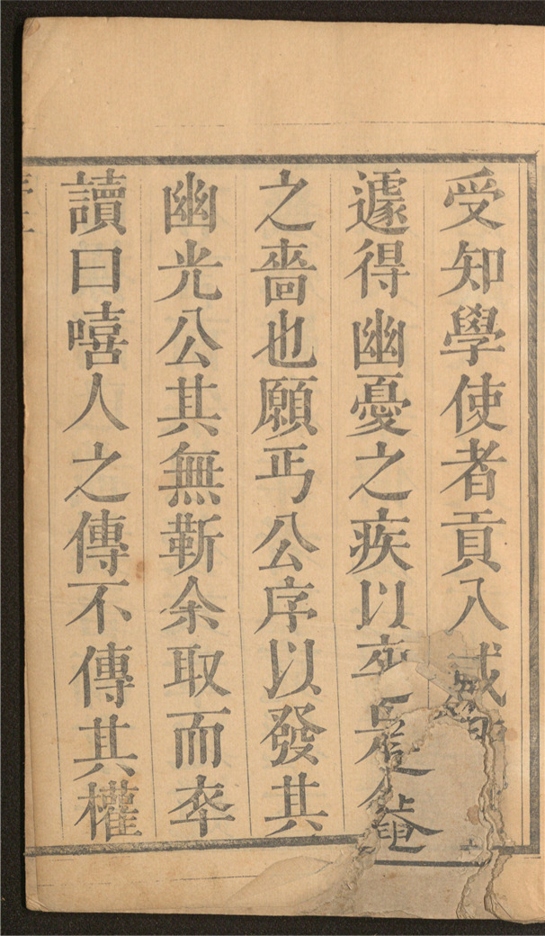 受知學使者貢入成
遽得幽憂之疾以卒
之嗇也願丐公序以發其
幽光公其無靳余取而卒
讀曰嘻人之傳不傳其權